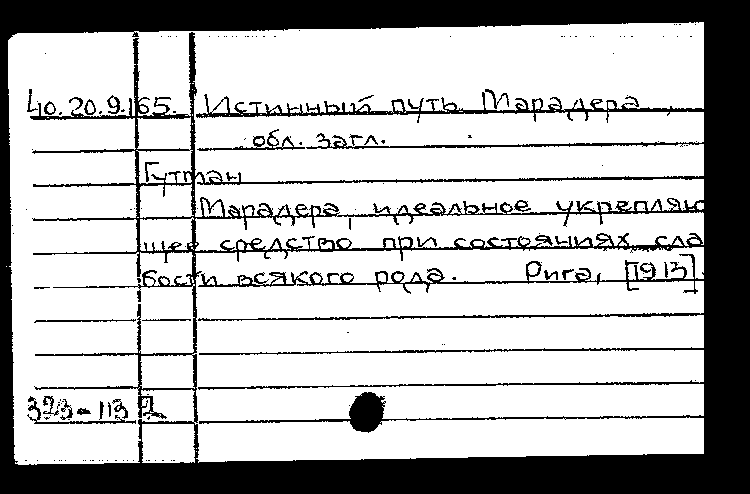 40.20.9.165. Истинный путь Марадера,
обл. загл.
Гутман
Марадера, идеальное укрепляю
щее средство при состояниях сла
бости всякого рода. Рига, [1913].
323-113 2